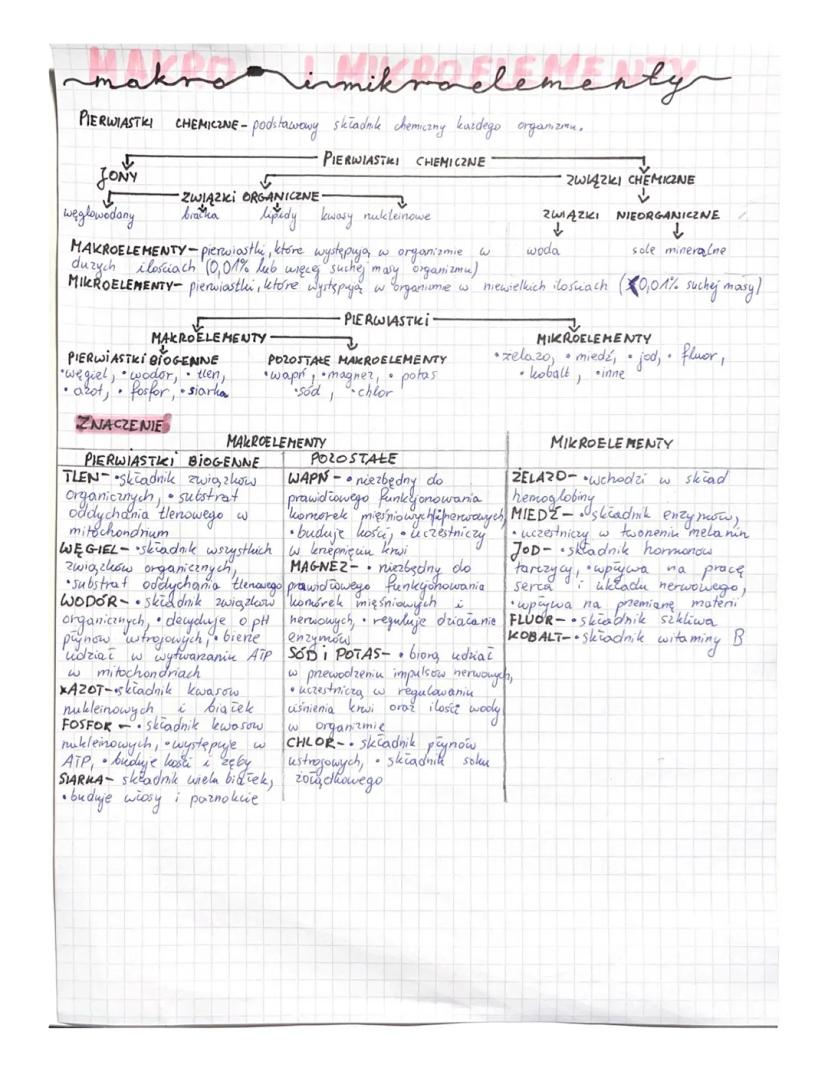 MAKRO I MIKROELEMENTY
makro i mikroelementy
PIERWIASTKI CHEMICZNE - podstawowy składnik chemiczny każdego organizmu.
PIERWIASTKI CHEMICZNE
JONY
ZWIĄZKI CHEMICZNE
ZWIĄZKI ORGANICZNE
węglowodany białka lipidy kwasy nukleinowe
ZWIĄZKI NIEORGANICZNE
woda sole mineralne
MAKROELEMENTY - pierwiastki, które występują w organizmie w
dużych ilościach (0,01% lub więcej suchej masy organizmu)
MIKROELEMENTY - pierwiastki, które występują w organizmie w niewielkich ilościach (<0,01% suchej masy)
PIERWIASTKI
MAKROELEMENTY
MIKROELEMENTY
PIERWIASTKI BIOGENNE
•węgiel, •wodór, •tlen,
•azot, •fosfor, •siarka
POZOSTAŁE MAKROELEMENTY
•wapń, •magnez, •potas
•sód, •chlor
•żelazo, •miedź, •jod, •fluor,
•kobalt, •inne
ZNACZENIE
MAKROELEMENTY
MIKROELEMENTY
PIERWIASTKI BIOGENNE
POZOSTAŁE
TLEN - •składnik związków
organicznych, •substrat
oddychania tlenowego w
mitochondrium
WĘGIEL - •składnik wszystkich
związków organicznych,
•substrat oddychania tlenowego
WODÓR - •składnik związków
organicznych, •decyduje o pH
płynów utrojowych, •bierze
udział w wytwarzaniu ATP
w mitochondriach
AZOT - •składnik kwasów
nukleinowych i białek
FOSFOR - •składnik kwasów
nukleinowych, •występuje w
ATP, •buduje kości i zęby
SIARKA - składnik wielu białek,
•buduje włosy i paznokcie
WAPŃ - •niezbędny do
prawidłowego funkcjonowania
komórek mięśniowych i nerwowych,
•buduje kości, •uczestniczy
w krzepnięciu krwi
MAGNEZ - •niezbędny do
prawidłowego funkcjonowania
komórek mięśniowych i
nerwowych, •reguluje działanie
enzymów
SÓD i POTAS - •biorą udział
w przewodzeniu impulsów nerwowych,
•uczestniczą w regulowaniu
ciśnienia krwi oraz ilości wody
w organizmie
CHLOR - •składnik płynów
ustrojowych, •składnik soku
żołądkowego
ŻELAZO - •wchodzi w skład
hemoglobiny
MIEDŹ - •składnik enzymów,
•uczestniczy w tworzeniu melanin
JOD - •składnik hormonów
tarczycy, •wpływa na pracę
serca i układu nerwowego,
•wpływa na przemianę materii
FLUOR - •składnik szkliwa
KOBALT - •składnik witaminy B